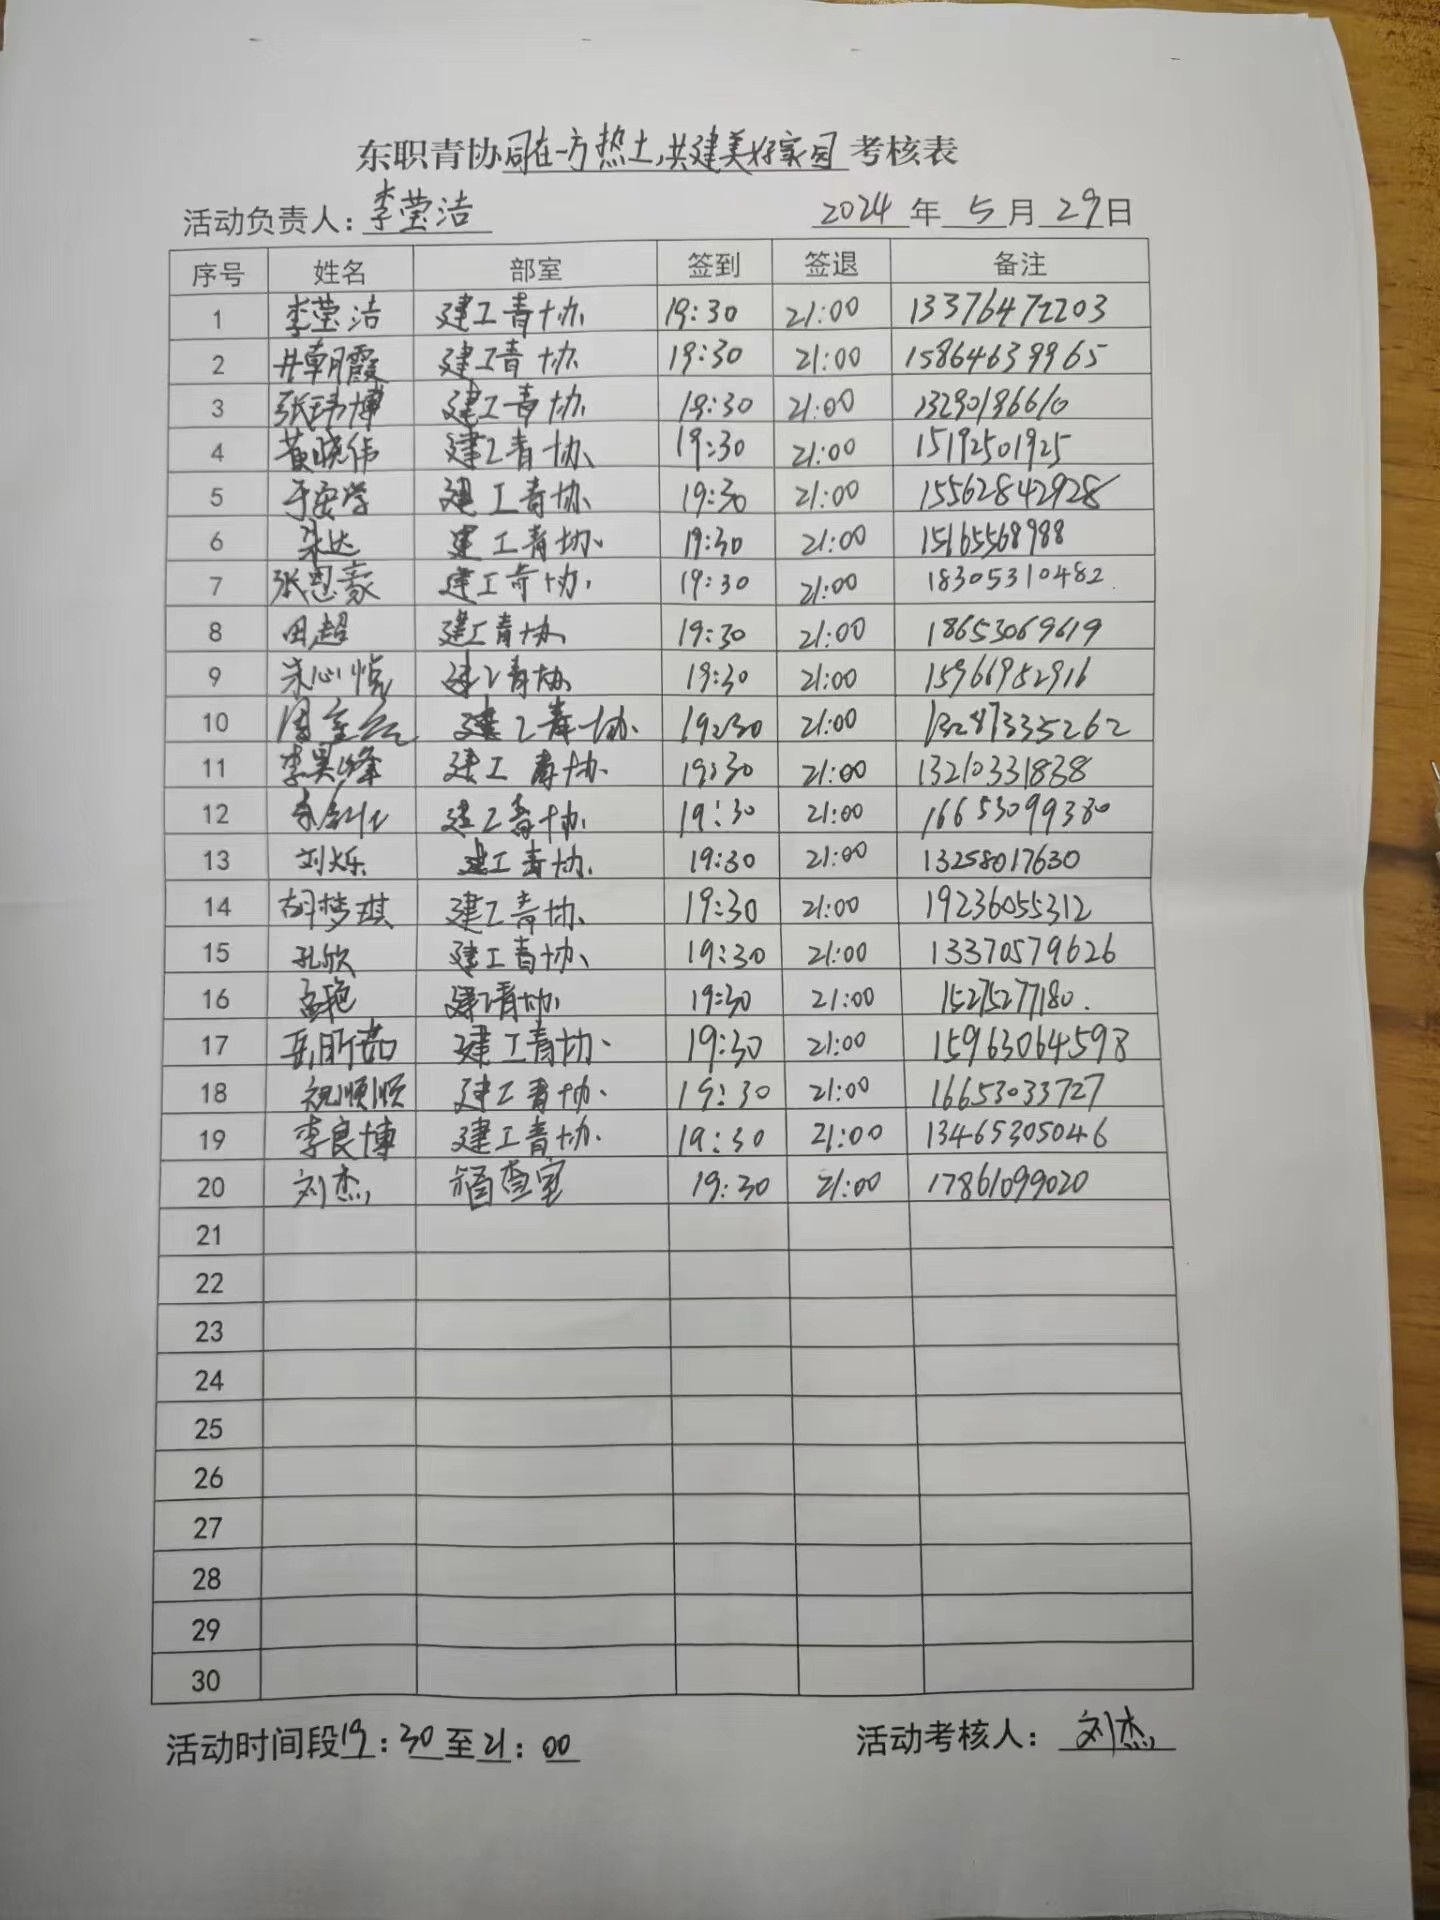 东职青协同在一方热土,共建美好家园考核表
活动负责人:李莹洁 2024年5月29日
序号 姓名 部室 签到 签退 备注
1 李莹洁 建工青协 19:30 21:00 13376472203
2 井朝霞 建工青协 19:30 21:00 15864639965
3 张玮博 建工青协 19:30 21:00 13290196610
4 黄晓伟 建工青协 19:30 21:00 15192501925
5 于安学 建工青协 19:30 21:00 15562842928
6 建工青协 19:30 21:00 15165568988
7 张恩豪 建工青协 19:30 21:00 18305310482
8 田超 建工青协 19:30 21:00 18653069619
9 建工青协 19:30 21:00 15966952916
10 建工青协 19:30 21:00 13287335262
11 李昊峰 建工青协 19:30 21:00 13210331838
12 建工青协 19:30 21:00 16653099380
13 刘烁 建工青协 19:30 21:00 13258017630
14 胡梦琪 建工青协 19:30 21:00 19236055312
15 孔欣 建工青协 19:30 21:00 13370579626
16 建工青协 19:30 21:00 15275277180
17 岳昕茹 建工青协 19:30 21:00 15963064598
18 祝顺顺 建工青协 19:30 21:00 16653033727
19 李良博 建工青协 19:30 21:00 13465305046
20 刘杰 督查室 19:30 21:00 17861099020
21
22
23
24
25
26
27
28
29
30
活动时间段19:30至21:00 活动考核人:刘杰